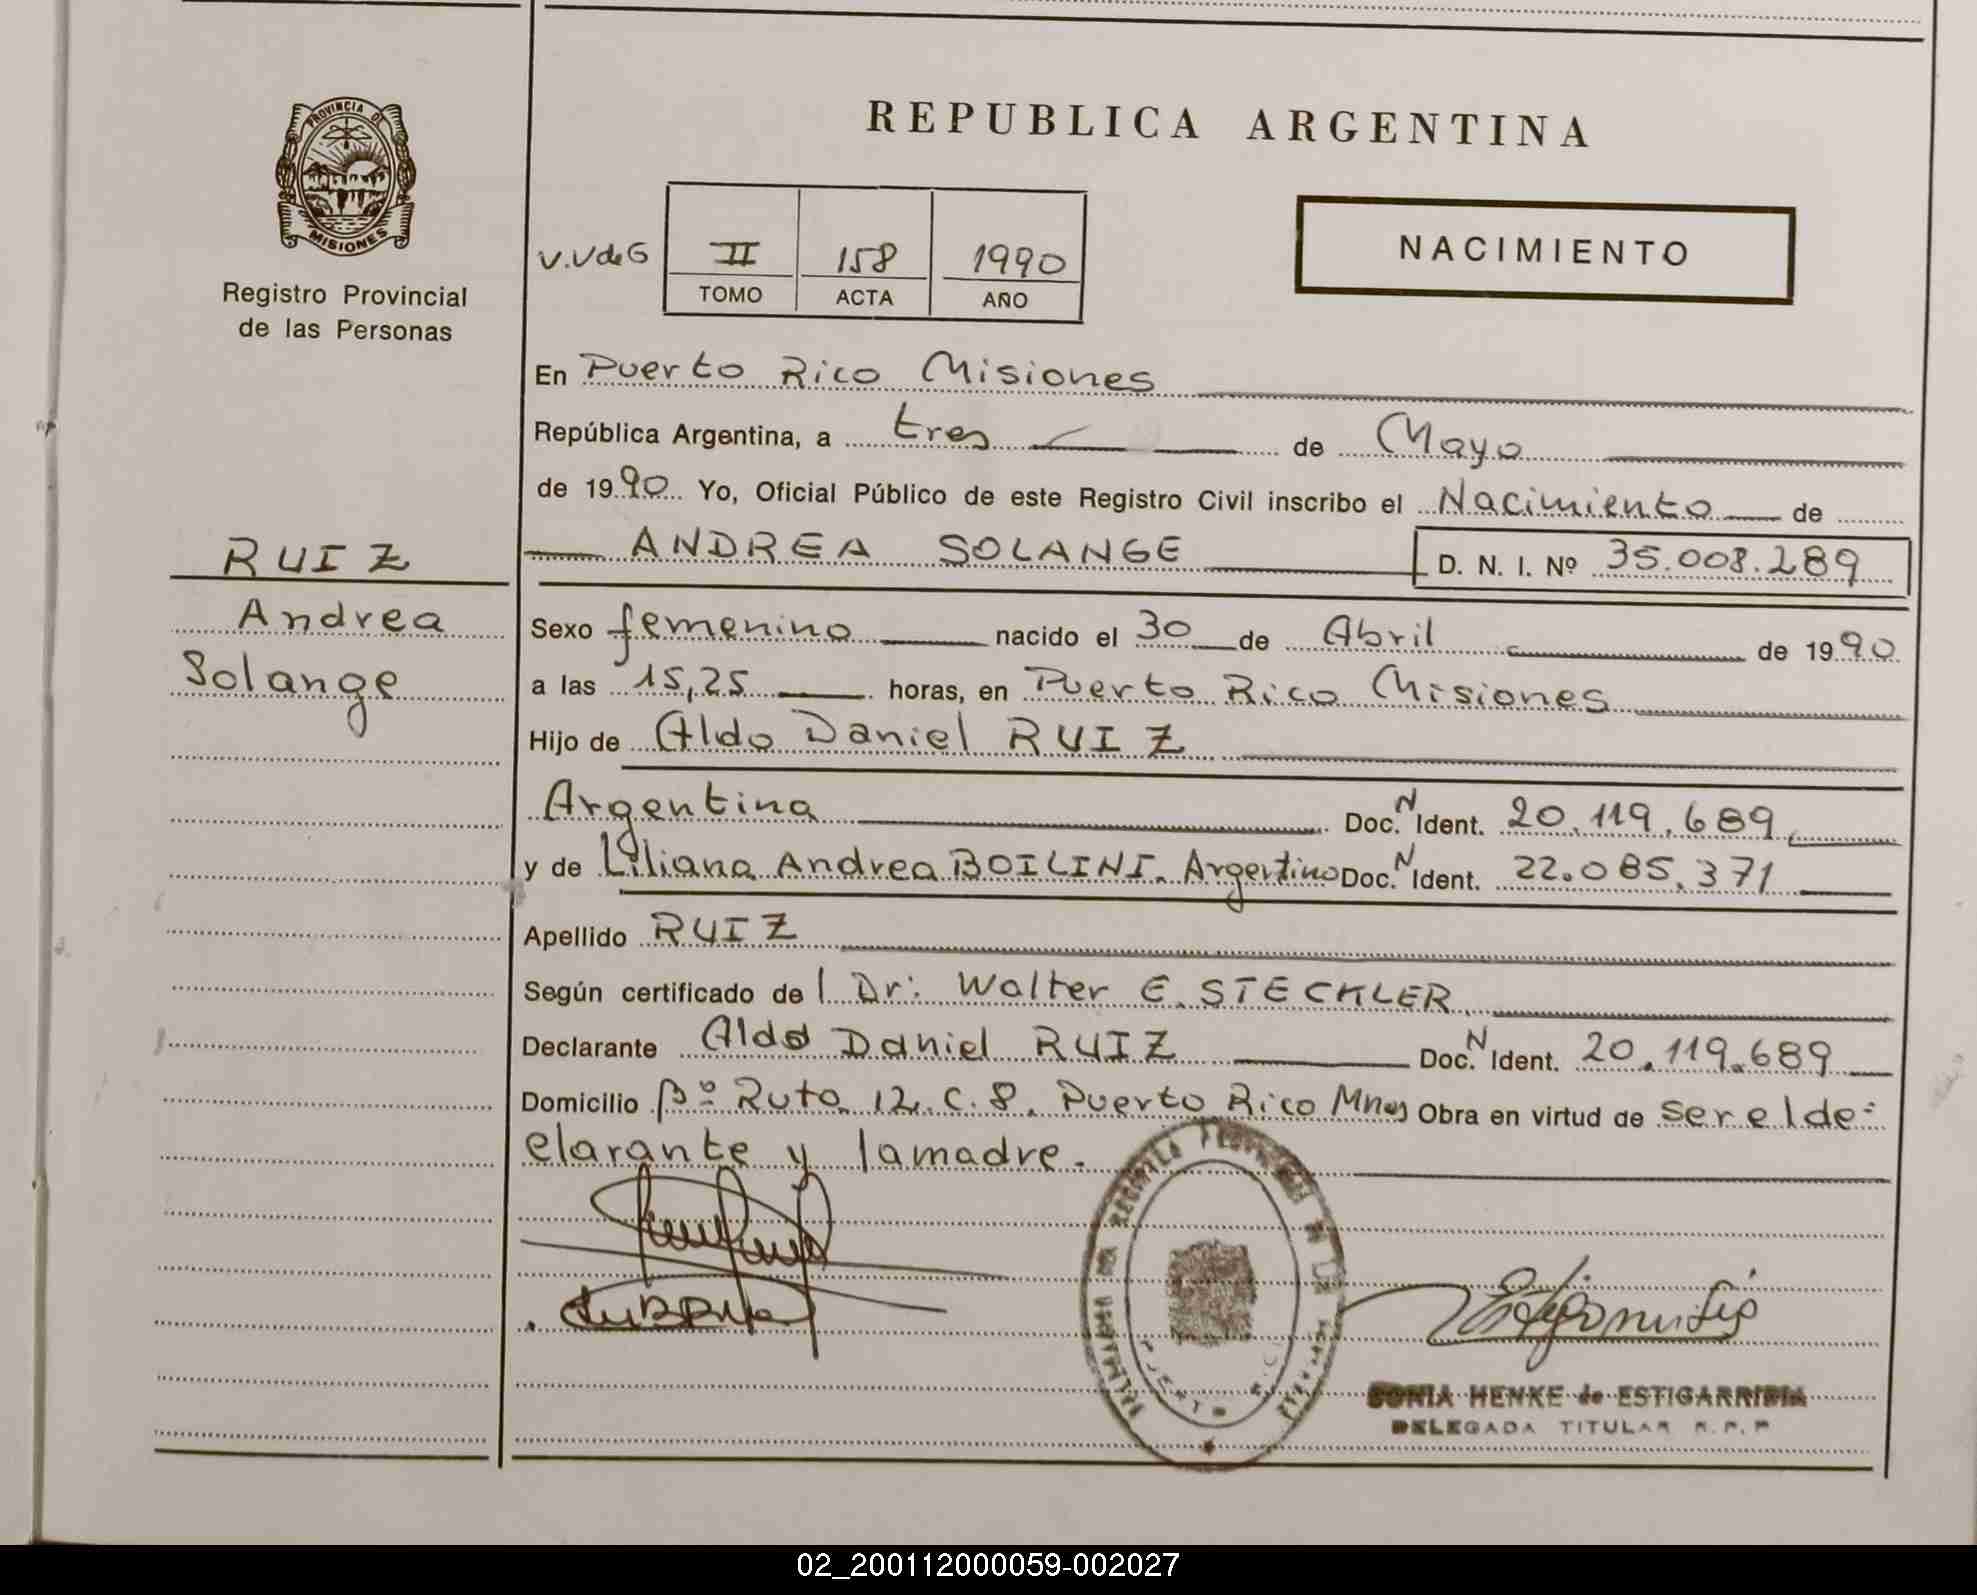 PROVINCIA DE
MISIONES
Registro Provincial
de las Personas
REPUBLICA ARGENTINA
NACIMIENTO
V.V de G II 158 1990
TOMO ACTA AÑO
En Puerto Rico Misiones
República Argentina, a tres de Mayo
de 1990 Yo, Oficial Público de este Registro Civil inscribo el Nacimiento de
ANDREA SOLANGE D. N. I. Nº 35.008.289
RUIZ
Andrea
Solange
Sexo femenino nacido el 30 de Abril de 1990
a las 15,25 horas, en Puerto Rico Misiones
Hijo de Aldo Daniel RUIZ
Argentina Doc. N Ident. 20.119.689
y de Liliana Andrea BOILINI. Argentino Doc. N Ident. 22.085.371
Apellido RUIZ
Según certificado del Dr: Walter E. STECKLER
Declarante Aldo Daniel RUIZ Doc. N Ident. 20.119.689
Domicilio Bº Ruta 12. C. 8. Puerto Rico Mnes Obra en virtud de ser el de=
clarante y la madre.
SONIA HENKE de ESTIGARRIBIA
DELEGADA TITULAR R.P.P
02_200112000059-002027